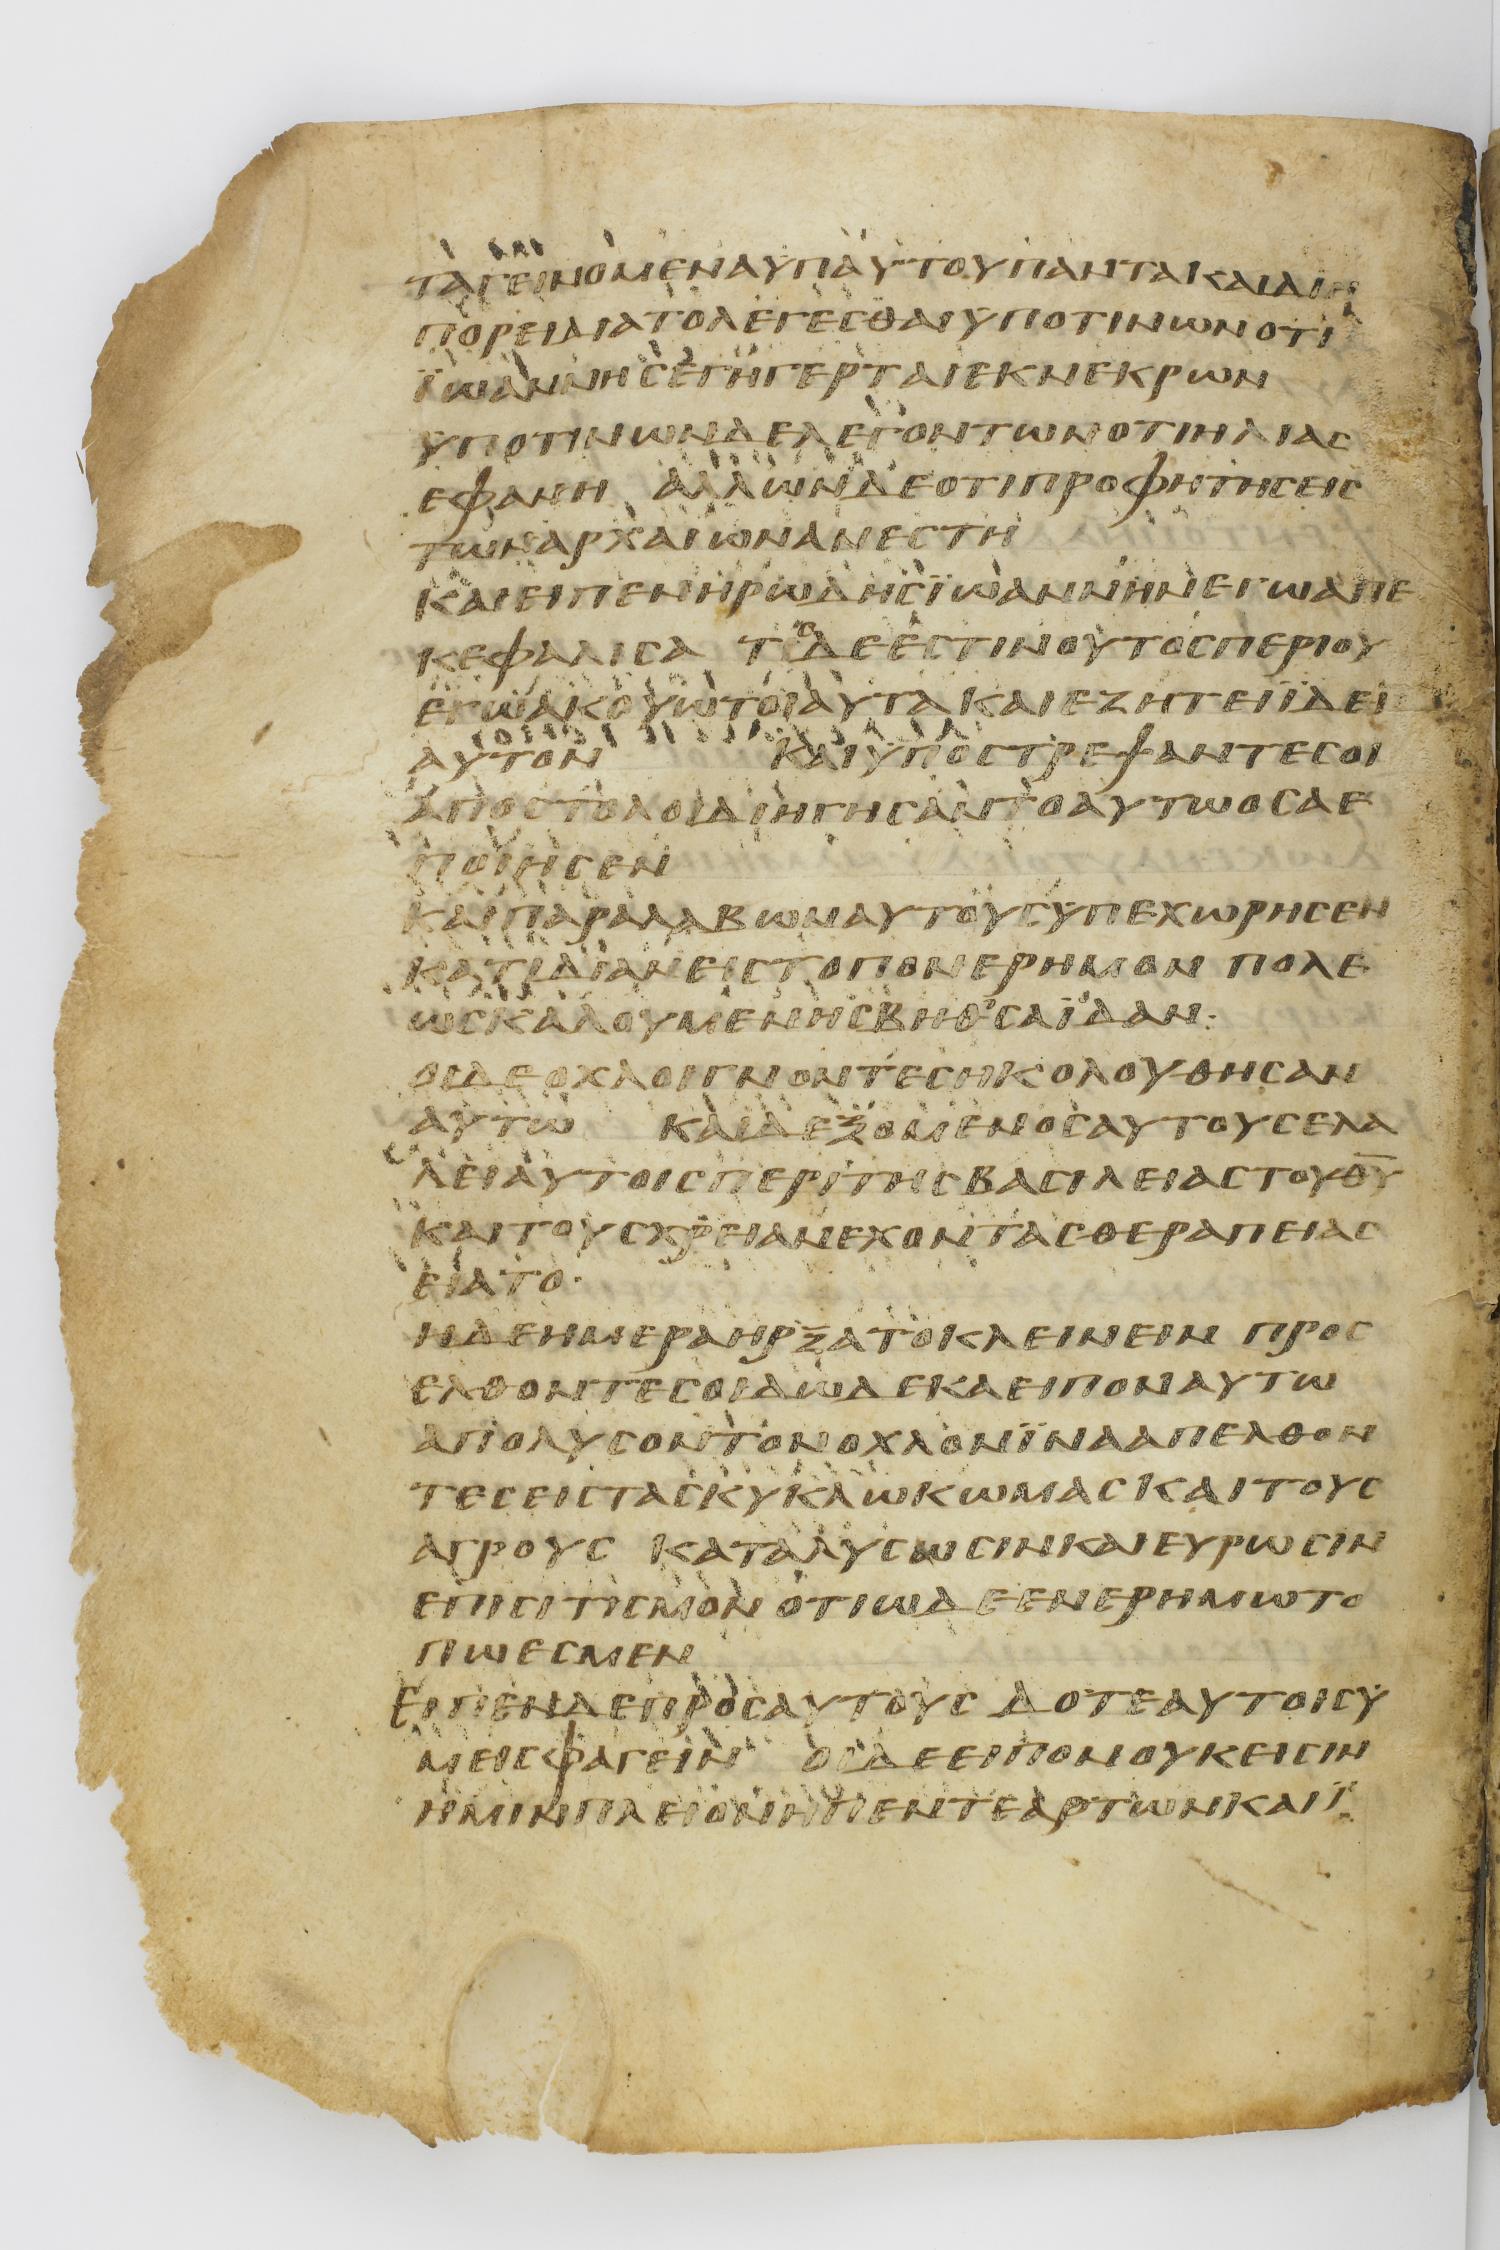 ΤΑΓΕΙΝΟΜΕΝΑΥΠΑΥΤΟΥΠΑΝΤΑΚΑΙΔΙΗ
ΠΟΡΕΙΔΙΑΤΟΛΕΓΕΣΘΑΙΥΠΟΤΙΝΩΝΟΤΙ
ΪΩΑΝΝΗΣΕΓΗΓΕΡΤΑΙΕΚΝΕΚΡΩΝ
ΥΠΟΤΙΝΩΝΔΕΛΕΓΟΝΤΩΝΟΤΙΗΛΙΑΣ
ΕΦΑΝΗ ΑΛΛΩΝΔΕΟΤΙΠΡΟΦΗΤΗΣΕΙΣ
ΤΩΝΑΡΧΑΙΩΝΑΝΕΣΤΗ
ΚΑΙΕΙΠΕΝΗΡΩΔΗΣΪΩΑΝΝΗΝΕΓΩΑΠΕ
ΚΕΦΑΛΙΣΑ ΤΙΣΔΕΕΣΤΙΝΟΥΤΟΣΠΕΡΙΟΥ
ΕΓΩΑΚΟΥΩΤΟΙΑΥΤΑΚΑΙΕΖΗΤΕΙΪΔΕΙ
ΑΥΤΟΝ ΚΑΙΥΠΟΣΤΡΕΨΑΝΤΕΣΟΙ
ΑΠΟΣΤΟΛΟΙΔΙΗΓΗΣΑΝΤΟΑΥΤΩΟΣΑΕ
ΠΟΙΗΣΕΝ
ΚΑΙΠΑΡΑΛΑΒΩΝΑΥΤΟΥΣΥΠΕΧΩΡΗΣΕΝ
ΚΑΤΙΔΙΑΝΕΙΣΤΟΠΟΝΕΡΗΜΟΝ ΠΟΛΕ
ΩΣΚΑΛΟΥΜΕΝΗΣΒΗΘΣΑΪΔΑΝ·
ΟΙΔΕΟΧΛΟΙΓΝΟΝΤΕΣΗΚΟΛΟΥΘΗΣΑΝ
ΑΥΤΩ ΚΑΙΔΕΞΟΜΕΝΟΣΑΥΤΟΥΣΕΛΑ
ΛΕΙΑΥΤΟΙΣΠΕΡΙΤΗΣΒΑΣΙΛΕΙΑΣΤΟΥΘ̅Υ̅
ΚΑΙΤΟΥΣΧΡΕΙΑΝΕΧΟΝΤΑΣΘΕΡΑΠΕΙΑΣ
ΕΙΑΤΟ·
ΗΔΕΗΜΕΡΑΗΡΞΑΤΟΚΛΕΙΝΕΙΝ ΠΡΟΣ
ΕΛΘΟΝΤΕΣΟΙΔΩΔΕΚΑΕΙΠΟΝΑΥΤΩ
ΑΠΟΛΥΣΟΝΤΟΝΟΧΛΟΝΪΝΑΑΠΕΛΘΟΝ
ΤΕΣΕΙΣΤΑΣΚΥΚΛΩΚΩΜΑΣΚΑΙΤΟΥΣ
ΑΓΡΟΥΣ ΚΑΤΑΛΥΣΩΣΙΝΚΑΙΕΥΡΩΣΙΝ
ΕΠΙΣΙΤΙΣΜΟΝ ΟΤΙΩΔΕΕΝΕΡΗΜΩΤΟ
ΠΩΕΣΜΕΝ
ΕΙΠΕΝΔΕΠΡΟΣΑΥΤΟΥΣ ΔΟΤΕΑΥΤΟΙΣΥ
ΜΕΙΣΦΑΓΕΙΝ ΟΙΔΕΕΙΠΟΝΟΥΚΕΙΣΙΝ
ΗΜΙΝΠΛΕΙΟΝΗΠΕΝΤΕΑΡΤΩΝΚΑΙΪ